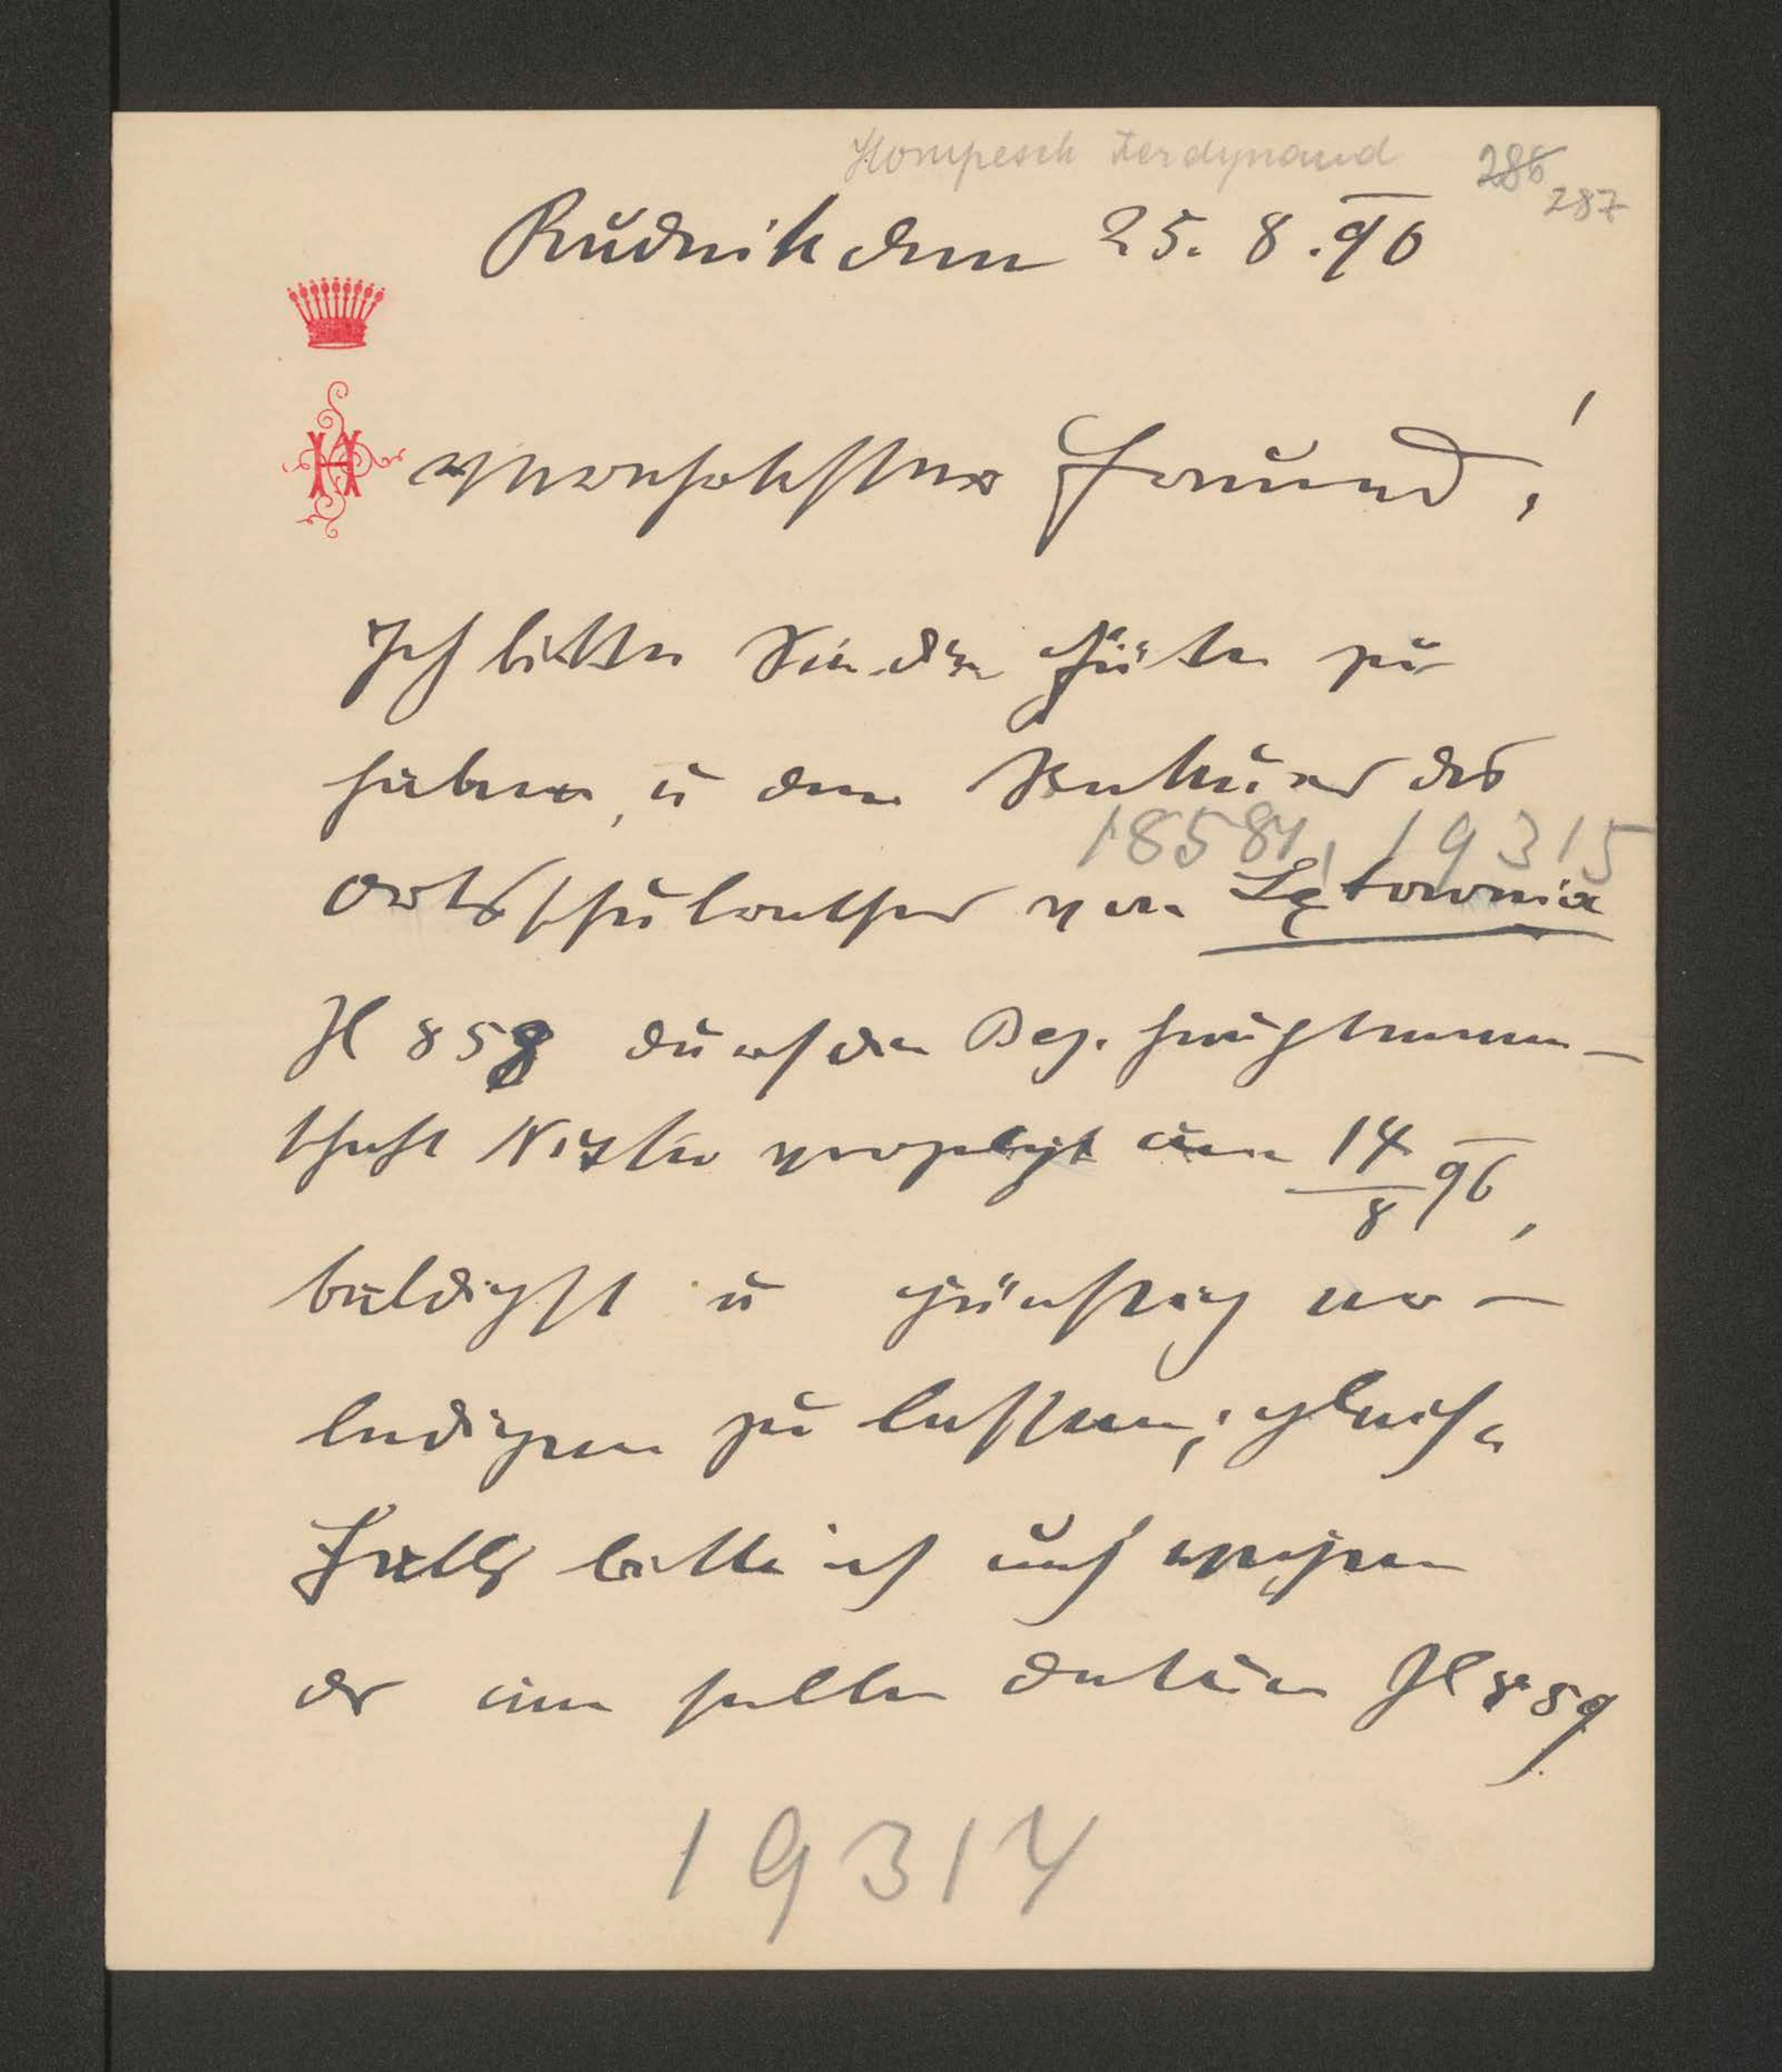 Hompesch Ferdynand 286 287
Rudnik den 25. 8. 96
H
Verehrtester Freund!
Ich bitte Sie die Güte zu
haben, u den Rekurs des
18581, 19315
Ortsschulrathes von Łętownia
Zl 858 durch die Bez. Hauptmann-
schaft Nisko vorgelegt am 14/8 96,
baldigst u günstig er-
ledigen zu lassen; gleich-
falls bitte ich auch wegen
der im selben Datum Zl 859
19314